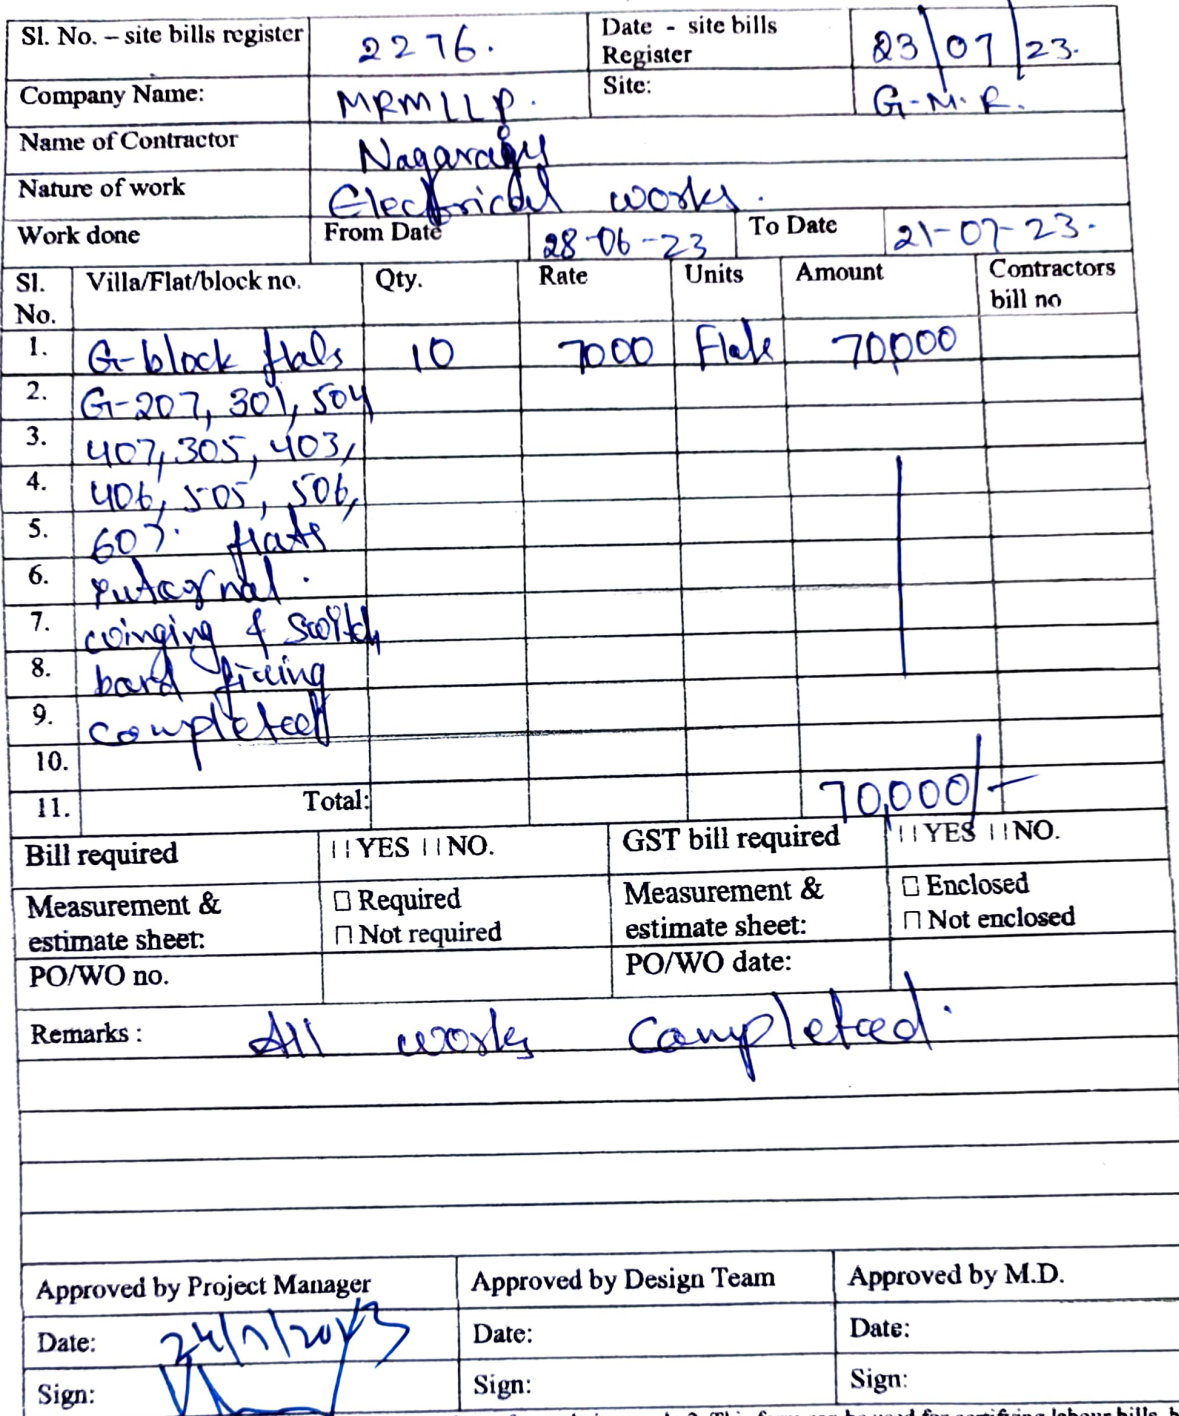 Sl. No. – site bills register 2276. Date - site bills Register 23/07/23.
Company Name: MRMLLP. Site: G.M.R.
Name of Contractor Nagaraju
Nature of work Electrical works.
Work done From Date 28-06-23 To Date 21-07-23.
Sl. No. Villa/Flat/block no. Qty. Rate Units Amount Contractors bill no
1. G-block flats 10 7000 Flats 70,000
2. G-207, 301, 504
3. 407, 305, 403,
4. 406, 505, 506,
5. 607. flats
6.
7. & switch
8. board fixing
9. completed
10.
11. Total: 70,000/-
Bill required YES NO. GST bill required YES NO.
Measurement & estimate sheet: □ Required □ Not required Measurement & estimate sheet: □ Enclosed □ Not enclosed
PO/WO no. PO/WO date:
Remarks : All works completed.
Approved by Project Manager Approved by Design Team Approved by M.D.
Date: 24/7/2023 Date: Date:
Sign: Sign: Sign: